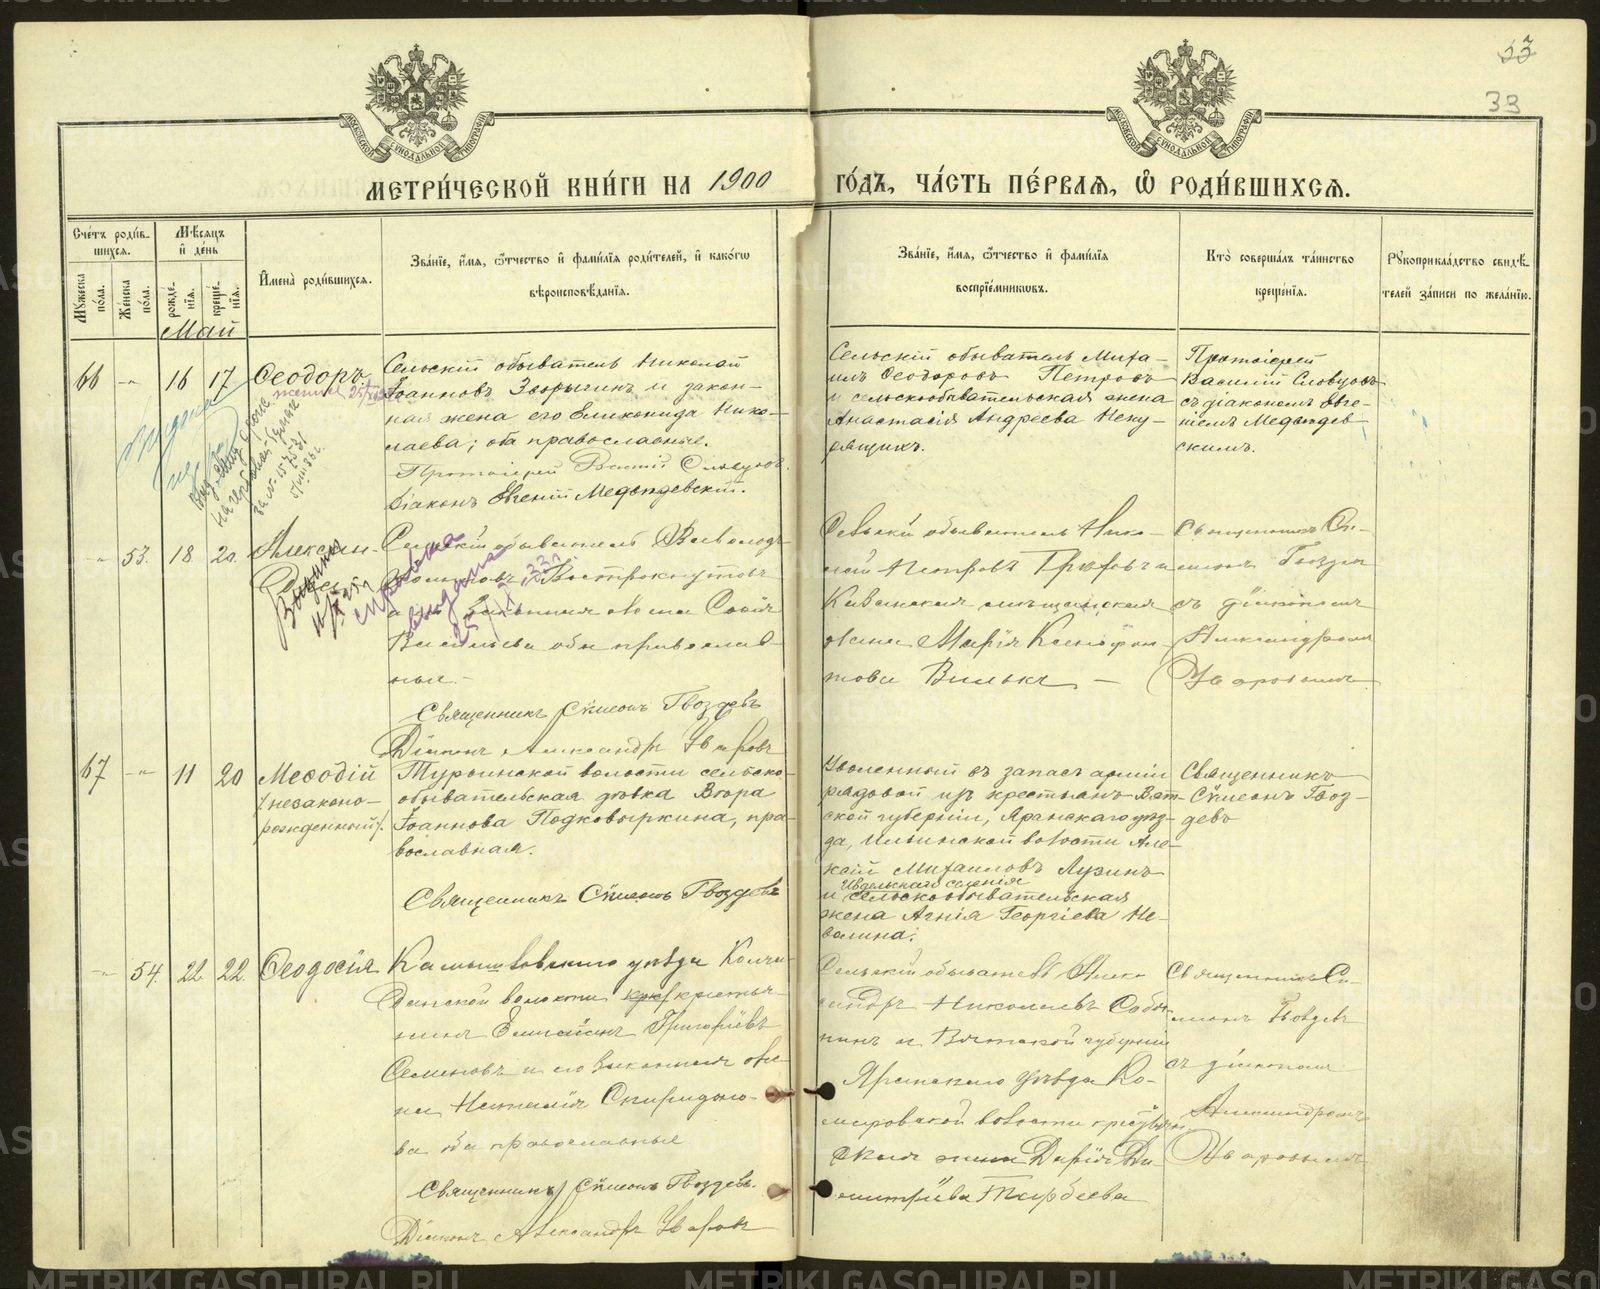 33
МЕТРИ́ЧЕСКОЙ КНИ́ГИ НА 1900 ГО́ДЪ, ЧА́СТЬ ПЕ́РВАѦ, Ѡ҆ РОДИ́ВШИХСѦ.
Сче́тъ роди́в-
шихсѧ.
Мꙋжеска
по́ла.
Женска
по́ла.
Мѣ́сѧцъ
и҆ де́нь
рожде́-
нїѧ.
креще́-
нїѧ.
И҆мена̀ роди́вшихсѧ.
Зва́нїе, и҆́мѧ, ѻ҆́тчество и҆ фами́лїѧ роди́телей, и҆ како́гѡ
вѣроисповѣ́данїѧ.
Зва́нїе, и҆́мѧ, ѻ҆́тчество и҆ фами́лїѧ
воспрїе́мникѡвъ.
Кто̀ соверша́лъ та́инство
креще́нїѧ.
Рꙋкоприкла́дство свидѣ́-
телей за́писи по жела́нїю.
Май
66 -„- 16 17 Ѳеодоръ.
Сельскій обыватель Николай
Іоанновъ Зворыгинъ и закон-
ная жена его Еликонида Нико-
лаева; оба православные.
Протоіерей Василій Словцовъ.
Діаконъ Евгеній Медвѣдевскій.
Сельскій обыватель Миха-
илъ Ѳеодоровъ Петровъ
и сельскообывательская жена
Анастасія Андреева Неку-
рящихъ.
Протоіерей
Василій Словцовъ
съ діакономъ Евге-
ніемъ Медвѣдев-
скимъ.
-„- 53. 18 20 Алексан-
Сельскій обыватель Всеволодъ
Вострокнутовъ
законная жена Софія
Васильева оба православ-
ные.-
Священникъ Сѵмеонъ Гвоздевъ
Діаконъ Александръ Уваровъ
справка
выдана
Сельскій обыватель Нико-
лай Петровъ и
Казанская мѣщанская
жена Марія Ксенофон-
това Вилькъ —
Священникъ Си-
меонъ Гвоздевъ
съ діакономъ
Александромъ
Уваровымъ
67 -„- 11 20 Меѳодій
/незаконо-
рожденный/.
Турьинской волости сельско-
обывательская дѣвка Вѣра
Іоаннова Подковыркина, пра-
вославная.
Священникъ Сѵмеонъ Гвоздевъ
Уволенный въ запасъ арміи
рядовой изъ крестьянъ Вят-
ской губерніи, Яранскаго уѣз-
да, Ильинской волости Але-
ксѣй Михаиловъ Лузинъ
Ивдельскаго селенія
и сельскообывательская
жена Агнія Георгіева Не-
волина.
Священникъ
Сѵмеонъ Гвоз-
девъ
-„- 54. 22 22 Ѳеодосія
Камышловскаго уѣзда Колче-
данской волости крестья-
нинъ Григоріевъ
Семеновъ и его законная же-
на Наталія Спиридоно-
ва оба православные
Священникъ Сѵмеонъ Гвоздевъ.
Діаконъ Александръ Уваровъ
Сельскій обыватель Алек-
сандръ Николаевъ Собя-
нинъ и Вятской губерніи
Яранскаго уѣзда Ко-
маровской волости крестьян-
ская жена Дарія Ди-
митріева Тарбеева
Священникъ Си-
меонъ Гвоздевъ
съ діакономъ
Александромъ
Уваровымъ